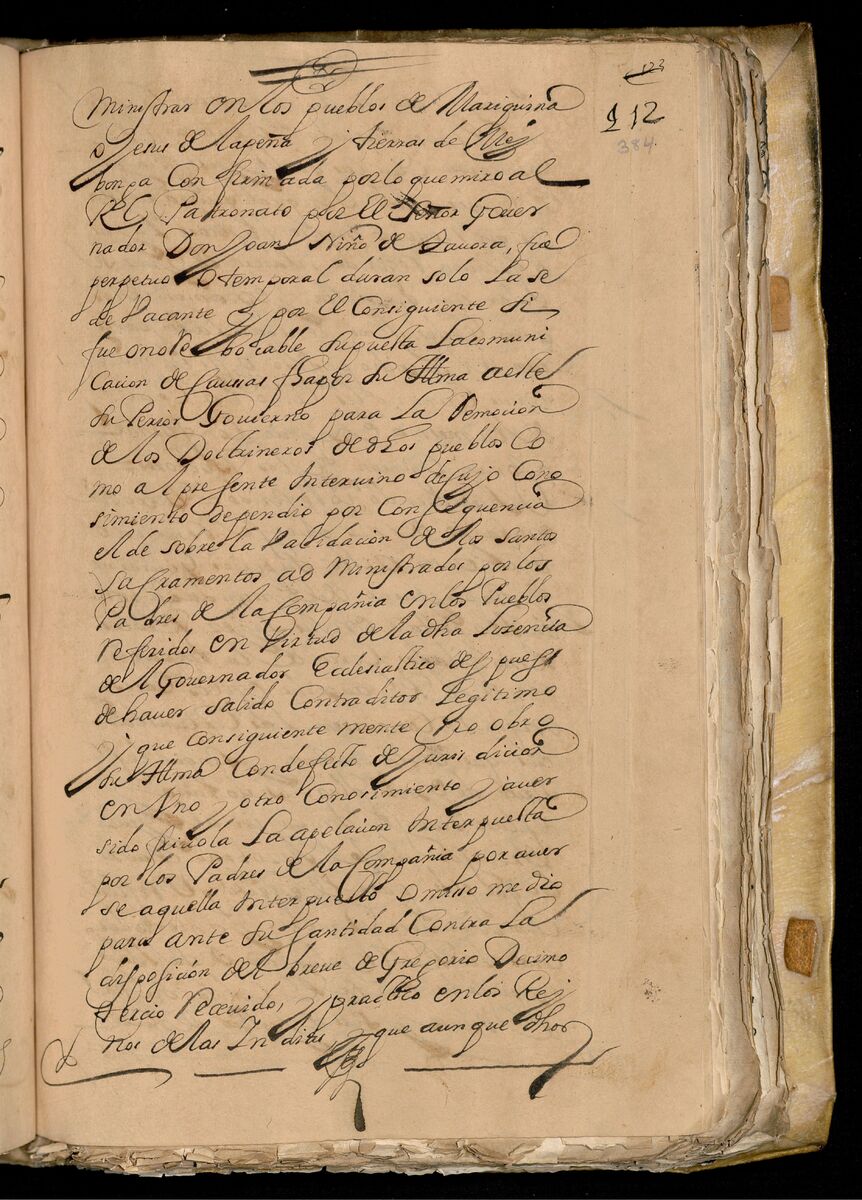 112
384
Ministrar en los pueblos de Mariquina
o Jesus de la peña y tierras de Mej
bonga Confirmada por lo que miro al
Rl Patronato por El Señor Gover
nador Don Joan Niño de Tavora, fue
perpetuo o temporal duran solo la se
de Vacante y por El Consiguiente si
fue o no Rebocable supuesta La comuni
cacion de Caussas fha por su Illma a este
superior Govierno para La Remocion
de los Doctrineros de dhos pueblos Co
mo al presente Intervino de cujo Cono
simiento dependio por Consequencia
el de sobre la Validacion de los santos
sacramentos administrados por los
Padres de la Compañia en los Pueblos
referidos en Virtud de la dha Lizencia
del Governador Ecclesiastico despues
de haver salido Contraditor Legitimo
y que consiguientemente no obro
su Illma Con defecto de jurisdicion
en Uno y otro Conosimiento y aver
sido frivola La apelacion Interpuesta
por los Padres de la Compañia por aver
se aquella Interpuesto omiso medio
para ante su santidad Contra La
disposicion del breve de Gregorio Decimo
tercio Recevido, y practico en los Rej
nos de las Indias, y que aunque dhos